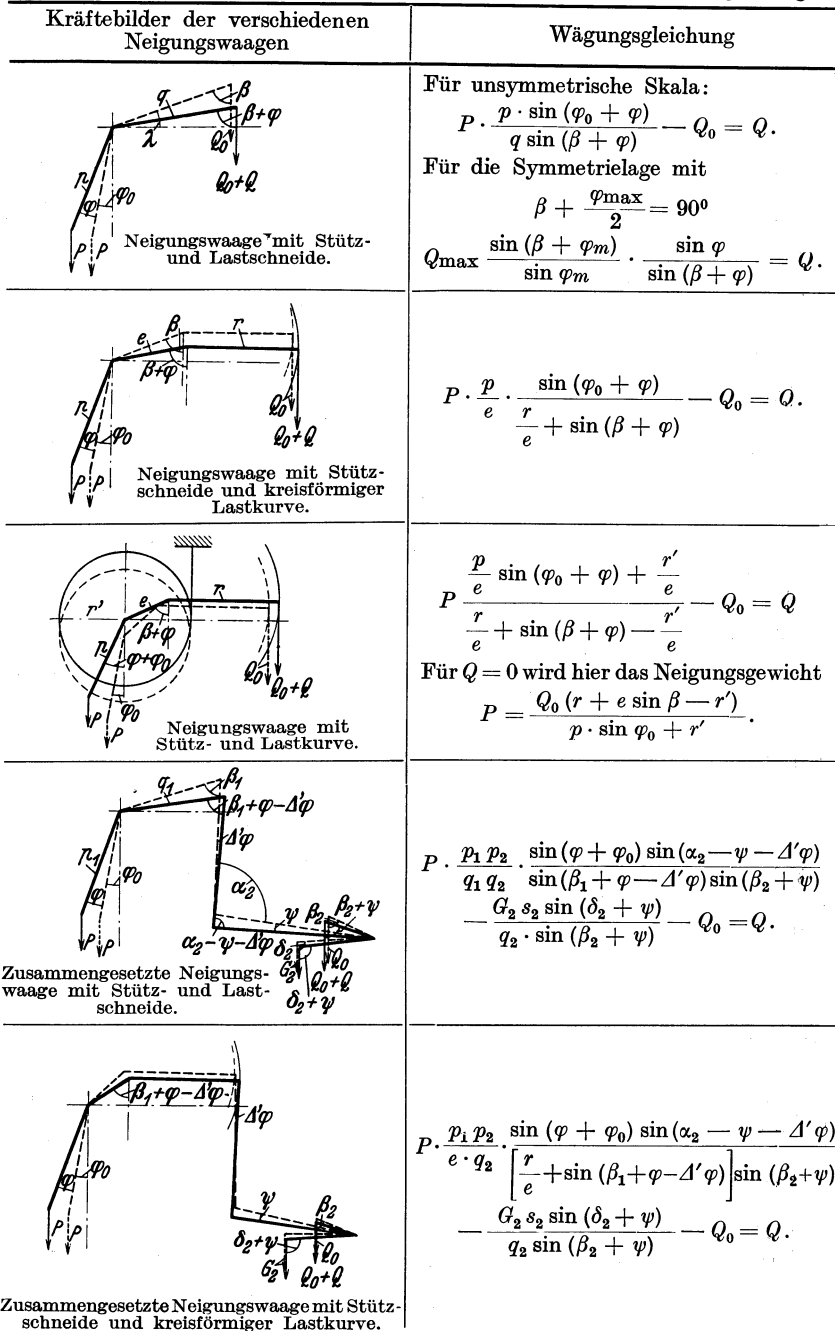 Kräftebilder der verschiedenen
Neigungswaagen
Wägungsgleichung
q
β
β+φ
λ
Q₀
Q₀+Q
p
φ
φ₀
P
P
Neigungswaage mit Stütz-
und Lastschneide.
Für unsymmetrische Skala:
P · p · sin (φ₀ + φ) / q sin (β + φ) — Q₀ = Q.
Für die Symmetrielage mit
β + φmax / 2 = 90⁰
Qmax sin (β + φm) / sin φm · sin φ / sin (β + φ) = Q.
e
β
r
β+φ
p
φ
φ₀
Q₀
Q₀+Q
P
P
Neigungswaage mit Stütz-
schneide und kreisförmiger
Lastkurve.
P · p / e · sin (φ₀ + φ) / (r / e + sin (β + φ)) — Q₀ = Q.
r'
e
r
β+φ
p
φ+φ₀
Q₀
Q₀+Q
φ₀
P
P
Neigungswaage mit
Stütz- und Lastkurve.
P (p / e sin (φ₀ + φ) + r' / e) / (r / e + sin (β + φ) — r' / e) — Q₀ = Q
Für Q = 0 wird hier das Neigungsgewicht
P = Q₀ (r + e sin β — r') / p · sin φ₀ + r' .
q₁
β₁
β₁+φ-Δ'φ
Δ'φ
p₁
φ₀
φ
α₂'
ψ
β₂
β₂+ψ
P
P
α₂-ψ-Δ'φ
δ₂
G₂
Q₀
Q₀+Q
δ₂+ψ
Zusammengesetzte Neigungs-
waage mit Stütz- und Last-
schneide.
P · p₁ p₂ / q₁ q₂ · sin (φ + φ₀) sin (α₂ — ψ — Δ'φ) / sin (β₁ + φ — Δ'φ) sin (β₂ + ψ)
— G₂ s₂ sin (δ₂ + ψ) / q₂ · sin (β₂ + ψ) — Q₀ = Q.
β₁+φ-Δ'φ
Δ'φ
φ₀
φ
ψ
β₂
P
P
δ₂+ψ
G₂
Q₀
Q₀+Q
Zusammengesetzte Neigungswaage mit Stütz-
schneide und kreisförmiger Lastkurve.
P · p₁ p₂ / e · q₂ · sin (φ + φ₀) sin (α₂ — ψ — Δ'φ) / [r / e + sin (β₁+φ—Δ'φ)] sin (β₂+ψ)
— G₂ s₂ sin (δ₂ + ψ) / q₂ sin (β₂ + ψ) — Q₀ = Q.